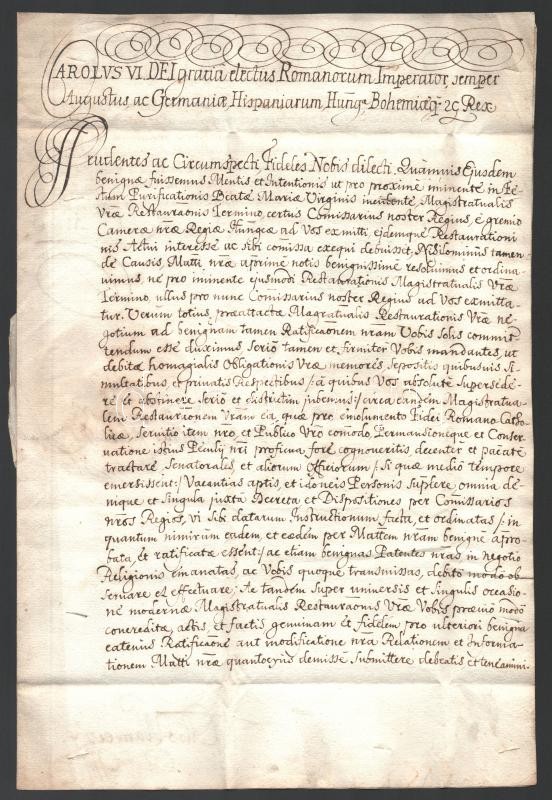 CAROLVS VI. DEI gratiâ electus Romanorum Imperator, semper
Augustus ac Germaniæ Hispaniarum Hung. Bohemiæq. 2c Rex
Prudentes ac Circumspecti Fideles Nobis dilecti. Quámvis Ejusdem
benignæ fuissemus Mentis et Intentionis ut pro proximè iminente in Fe-
stum Purificationis Beatæ Mariæ Virginis incidente, Magistratualis
Vræ Restauraonis Termino, certus Comissarius noster Regius, è gremio
Cameræ nræ Regiæ Hungcæ ad Vos exmitti, ejdemque Restaurationi-
nis Actui interesse ac sibi comissa exequi debuisset, Nihilominus tamen
de Causis, Matti nræ aprimè notis benignissimè resolvimus et ordina-
vimus, ne pro iminente ejusmodi Restaurationis Magistratualis Vræ
Termino, ullus pro nunc Comissarius noster Regius ad Vos exmitta-
tur. Verum totus, præattactæ Magratualis Restaurationis Vræ ne-
gotium ad benignam tamen Ratificaonem nram Vobis solis commit-
tendum esse duximus, seriò tamen et firmiter Vobis mandantes, ut
debitæ homagialis Obligationis Vræ memores, sepositis quibusvis Si-
multatibus, et privatis Respectibus /: à quibus Vos absolutè Supersede-
re et abstinere seriò et districtim jubemus :/ circa eandem Magistratua-
lem Restauraonem Vram ea, quæ pro emolumento Fidei Romano-Catho-
licæ, Servitio item nro, et Publico Vro comodo, Permansioneque et Conser-
vatione istius Peculij nri proficua fore cognoveritis decenter et pacatè
tractare, Senatorales, et aliorum Officiorum /: Si quæ medio tempore
emersissent :/ Vacantias aptis, et idoneis Personis Supplere omnia de-
nique et Singula juxta Decreta et Dispositiones per Comissarios
nros Regios, vi Sibi datarum Instructionum facta, et ordinatas /: in
quantum nimirum eadem, et eædem per Mattem nram benignè apro-
bata, et ratificatæ essent :/ ac etiam benignas Patentes nras in negotio
Religionis emanatas, ac Vobis quoque transmissas, debito modo ob-
servare et effectuare; Ac tandem super universis et Singulis occasio-
ne modernæ Magistratualis Restauraonis Vræ Vobis prævio modo
concreditæ, actis, et factis genuinam et fidelem pro ulteriori benigna
eatenus Ratificaone aut modificatione nra Relationem et Informa-
tionem Matti nræ quantocyus demissè submittere debeatis et teneamini.